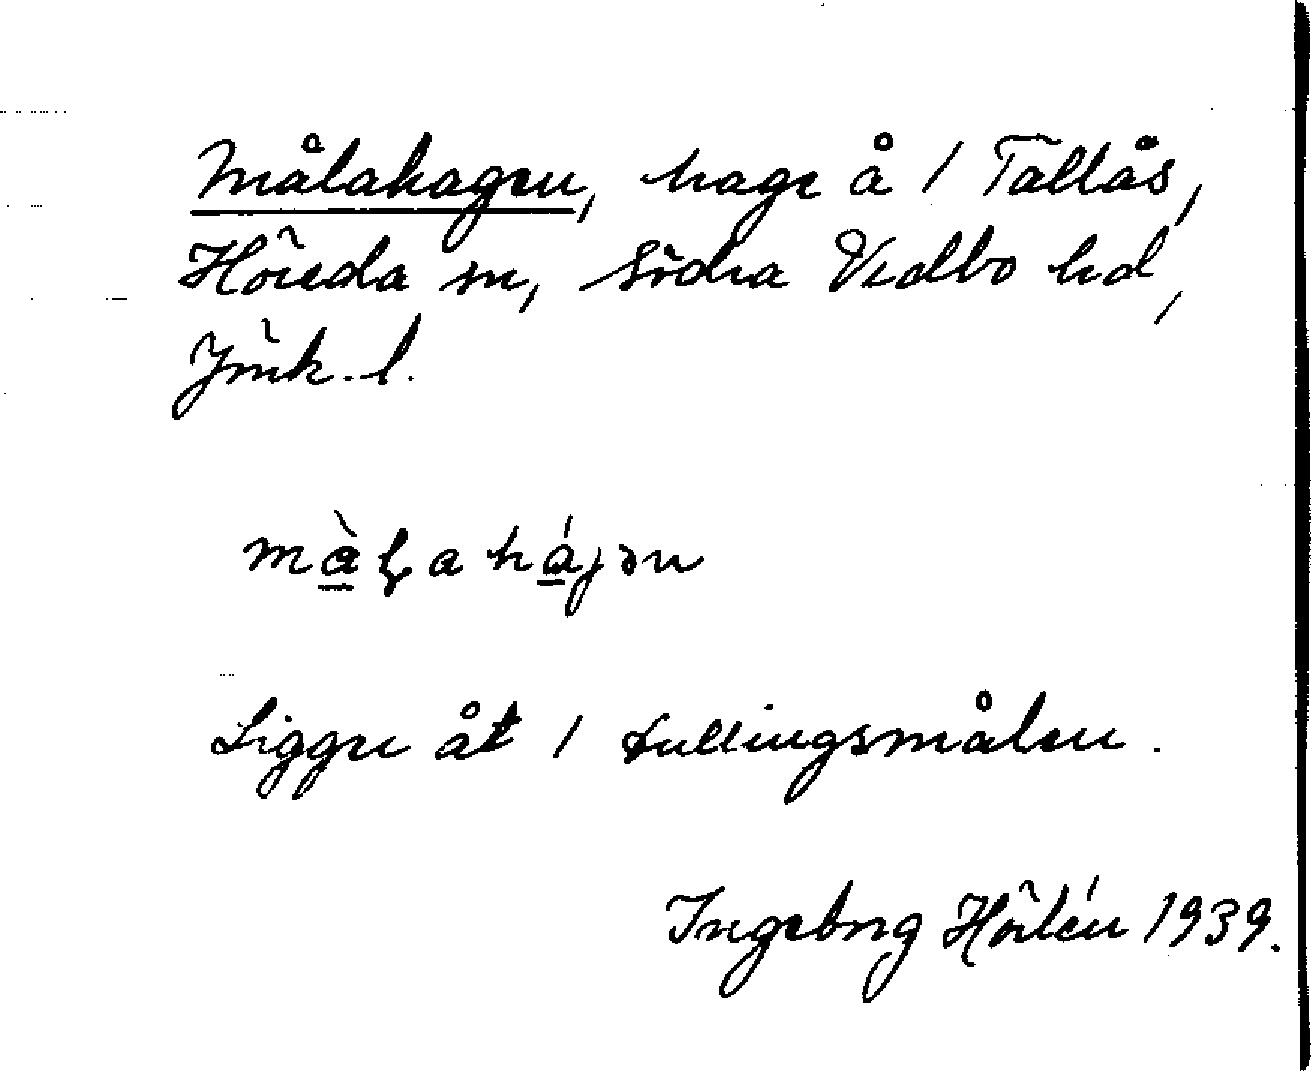 Målahagen, hage å 1 Tallås,
Höreda sn, Södra Vedbo hd,
Jönk. l.
màⱡahájən
Ligger åt 1 Fullingsmålen.
Ingeborg Hörlén 1939.